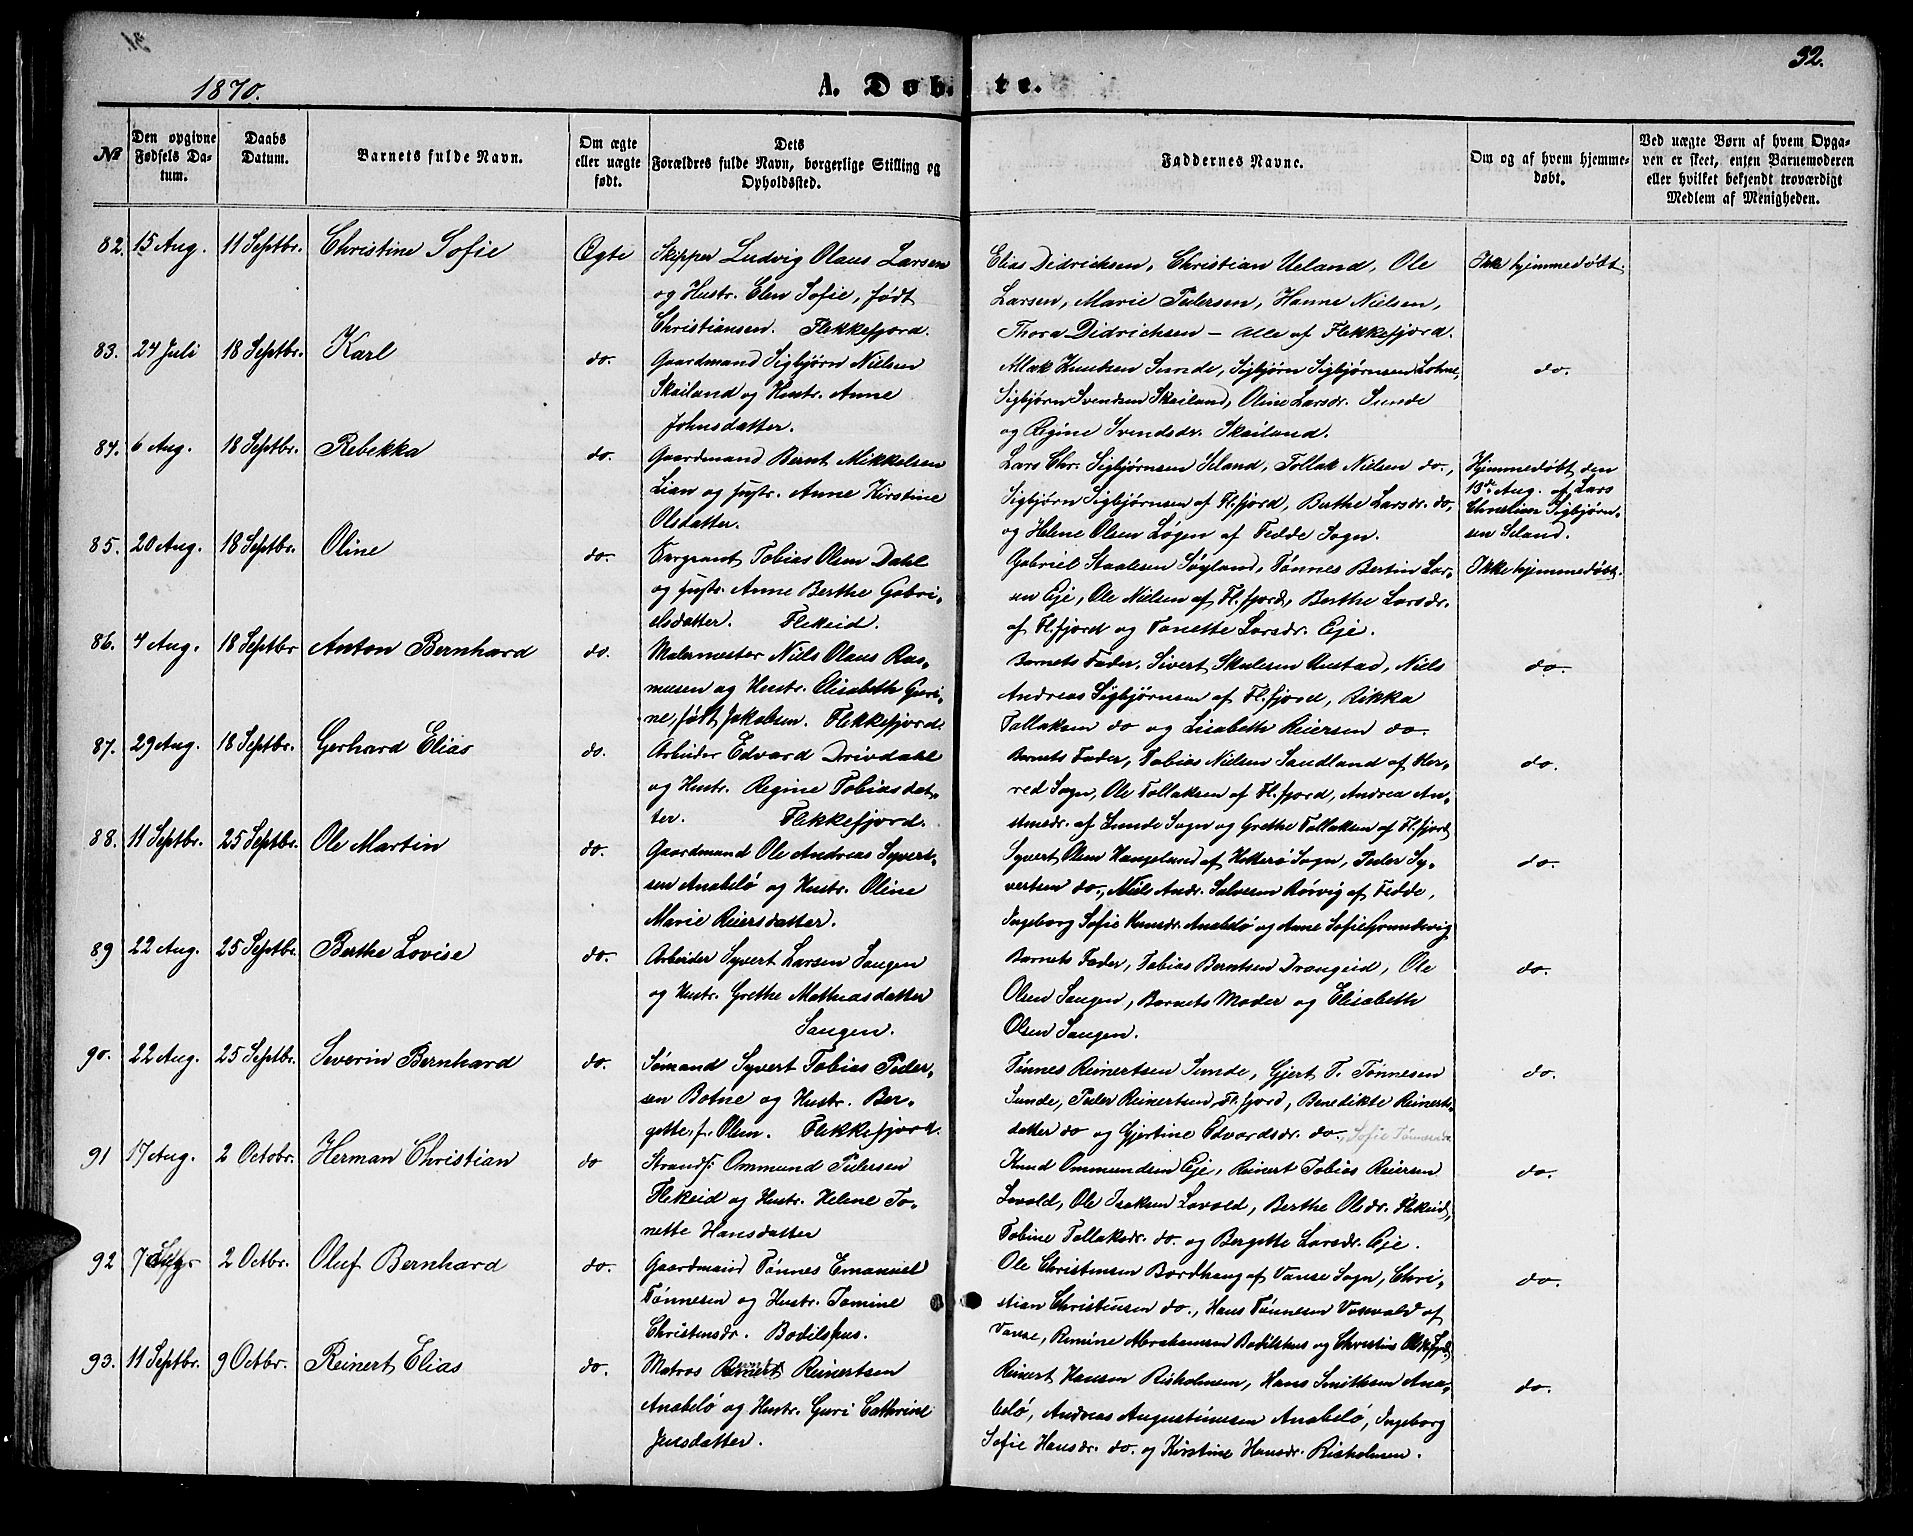 32.
1870.
A. Døbte.
№
Den opgivne Fødsels Da-tum.
Daabs Datum.
Barnets fulde Navn.
Om ægte eller uægte født.
Dets Forældres fulde Navn, borgerlige Stilling og Opholdssted.
Faddernes Navne.
Om og af hvem hjemme-døbt.
Ved uægte Børn af hvem Opga-ven er skeet, enten Barnemoderen eller hvilket bekjendt troværdigt Medlem af Menigheden.
82. 15 Aug. 11 Septbr. Christine Sofie Ægte
Skipper Ludvig Olaus Larsen
og Hustr. Elen Sofie, født
Christiansen. Flekkefjord.
Elias Didricksen, Christian Ueland, Ole
Larsen, Marie Pedersen, Hanne Nielsen,
Thora Didrichsen – Alle af Flekkefjord.
Ikke hjemmedøbt.
83. 24 Juli 18 Septbr. Karl do.
Gaardmand Sigbjørn Nielsen
Skailand og Hustr. Anne
Johnsdatter.
Aslak Knutsen Sunde, Sigbjørn Sigbjørnsen Lohne,
Sigbjørn Svendsen Skailand, Oline Larsdr. Sunde
og Regine Svendsdr. Skailand.
do.
84. 6 Aug. 18 Septbr. Rebekka do.
Gaardmand Bernt Mikkelsen
Lian og Hustr. Anne Kirstine
Olsdatter.
Lars Chr. Sigbjørnsen Seland, Tollak Nielsen do.,
Sigbjørn Sigbjørnsen af Fl.fjord, Berthe Larsdr. do.
og Helene Olsen Løgen af Fedde Sogn.
Hjemmedøbt den
13de Aug. af Lars
Christian Sigbjørn-
sen Seland.
85. 20 Aug. 18 Septbr. Oline do.
Sergeant Tobias Olsen Dahl
og Hustr. Anne Berthe Gabri-
elsdatter. Flikeid.
Gabriel Staalesen Søyland, Tønnes Bertin Lar-
sen Eje, Ole Nielsen af Fl.fjord, Berthe Larsdr.
af Fl.fjord og Tonette Larsdr. Eje.
Ikke hjemmedøbt.
86. 4 Aug. 18 Septbr Anton Bernhard do.
Malermester Niels Olaus Ras-
musen og Hustr. Elisabeth Guri-
ne, født Jakobsen. Flekkefjord.
Barnets Fader, Sivert Skulesen Rustad, Niels
Andreas Sigbjørnsen af Fl.fjord, Rikka
Tollaksen do og Lisabeth Reiersen do.
do.
87. 29 Aug. 18 Septbr. Gerhard Elias do.
Arbeider Edvard Drivdahl
og Hustr. Regine Tobiasdat-
ter. Flekkefjord.
Barnets Fader, Tobias Nielsen Sandland af Her-
red Sogn, Ole Tollaksen af Fl.fjord, Andrea An-
stensdr. af Lunde Sogn og Grethe Tollaksen af Fl.fjord
do.
88. 11 Septbr. 25 Septbr. Ole Martin do.
Gaardmand Ole Andreas Syvert-
sen Anabelø og Hustr. Oline
Marie Reiersdatter.
Syvert Olsen Haugeland af Hitterø Sogn, Peder Sy-
vertsen do., Niels Andr. Salvesen Rørvig af Fedde,
Ingeborg Sofie Hansdr. Anabelø og Anne Sofie
do.
89 22 Aug. 25 Septbr. Berthe Lovise do.
Arbeider Syvert Larsen Saugen
og Hustr. Grethe Mathiasdatter
Saugen.
Barnets Fader, Tobias Berntsen Drangeid, Ole
Olsen Saugen, Barnets Moder og Elisabeth
Olsen Saugen.
do.
90. 22 Aug. 25 Septbr. Severin Bernhard do.
Sømand Syvert Tobias Peder-
sen Botne og Hustr. Ber-
gette, f. Olsen. Flekkefjord.
Tønnes Reinertsen Sunde, Gjert T. Tønnesen
Sunde, Peder Reinertsen, Fl.fjord, Benedikte Reinerts-
datter do og Gjertine Edvardsdr. do., Sofie
do.
91 17 Aug. 2 Octobr. Herman Christian do
Strands. Ommund Pedersen
Flikeid og Hustr. Helene To-
nette Hansdatter
Knud Ommundsen Eje, Reinert Tobias Reiersen
Lovold, Ole Isaksen Lovold, Berthe Olsdr. Flikeid,
Tobine Tollaksdr. do. og Bergitte Larsdr. Eje.
do.
92 7 2 Octbr. Oluf Bernhard do.
Gaardmand Tønnes Emanuel
Tønnesen og Hustr. Tomine
Christensdr. Bodilshus.
Ole Christensen Bordhaug af Vanse Sogn, Chri-
stian Christensen do., Hans Tønnesen af
Vanse, Remine Abrahamsen Bodilshus og Christine
do.
93. 11 Septbr. 9 Octbr. Reinert Elias do.
Matros Reinert Reinertsen
Anabelø og Hustr. Guri Cathrine
Jensdatter.
Reinert Hansen Risholmen, Hans Smithsen Ana-
belø, Andreas Augustinusen Anabelø, Ingeborg
Sofie Hansdr. do. og Kirstine Hansdr. Risholmen.
do.